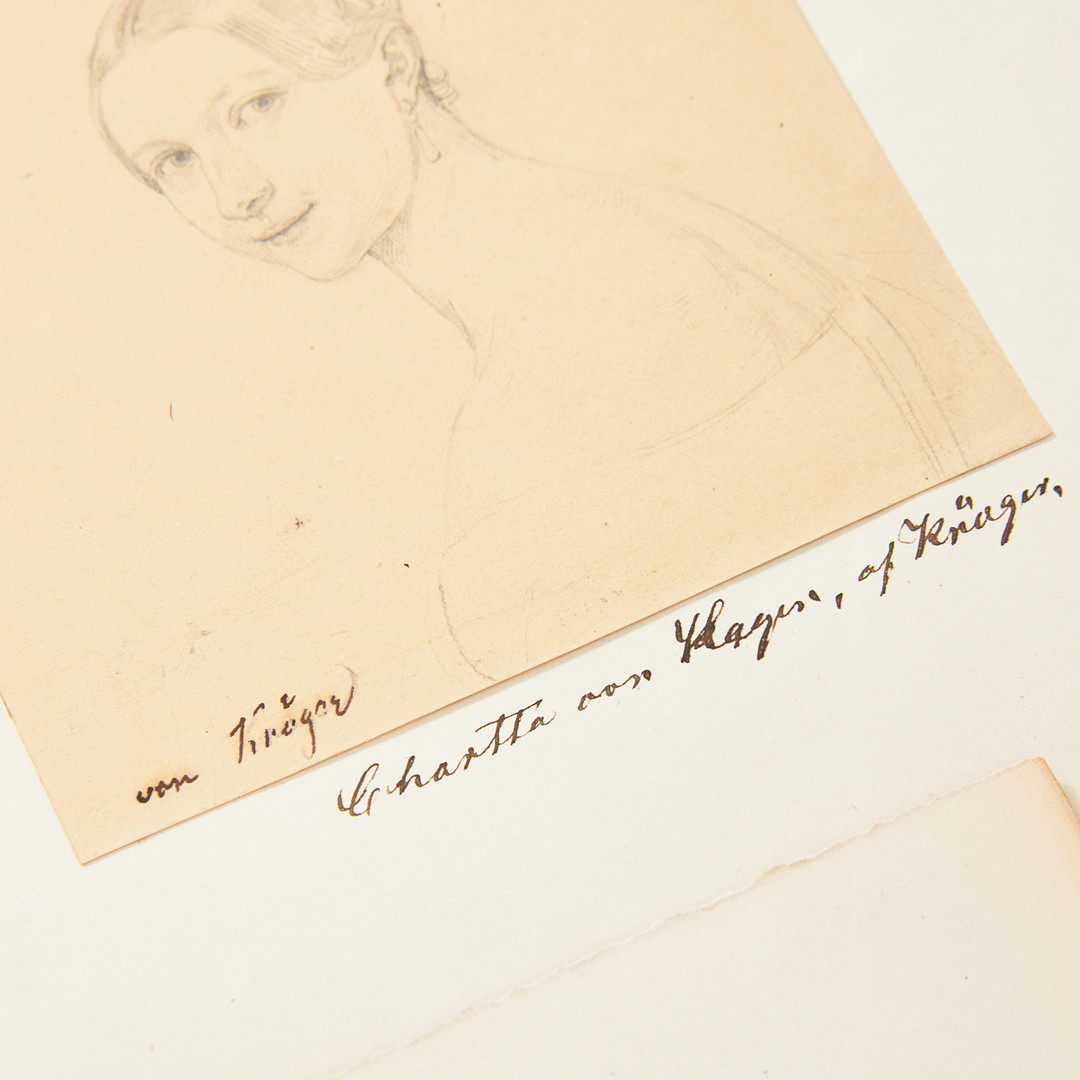 von Krüger
Chartta von Hagen, af Krüger.